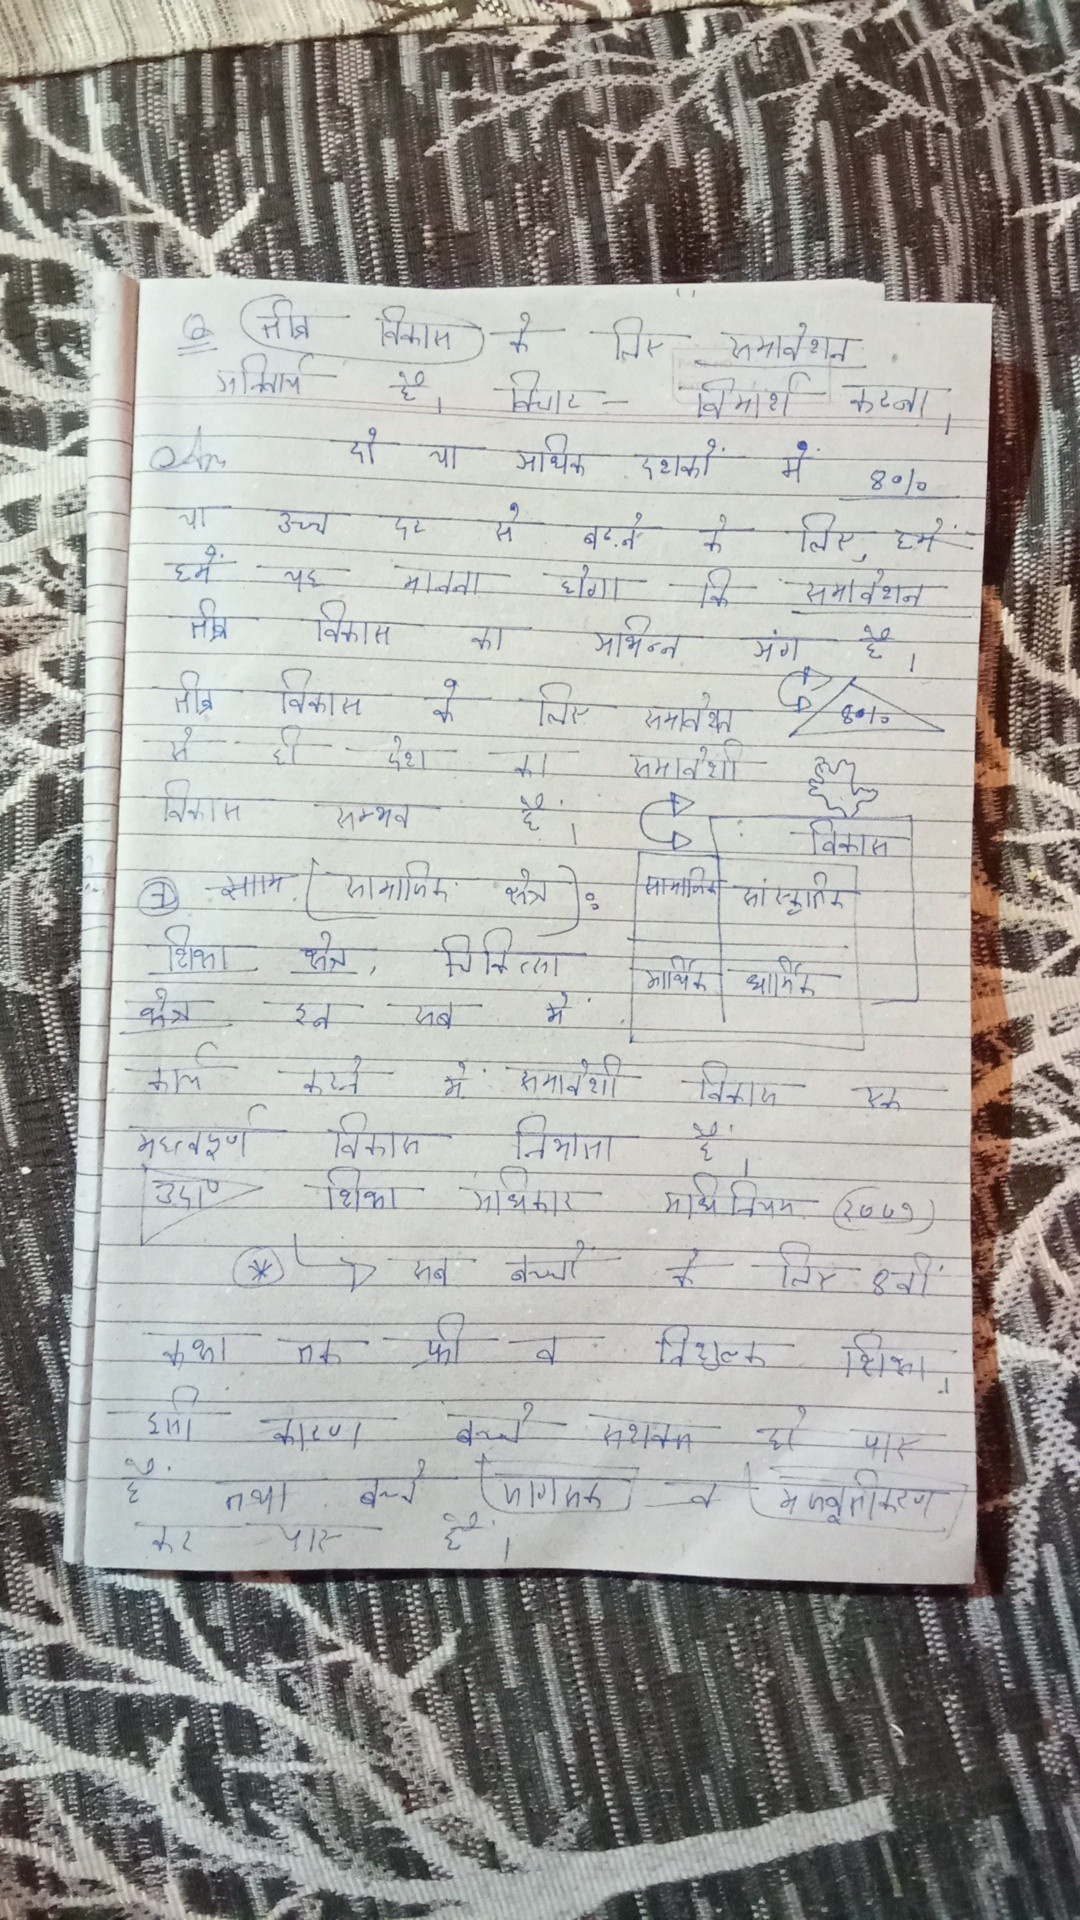 Q तीव्र विकास के लिए समावेशन
अनिवार्य है। विचार - विमार्श करना।
Ans दो या अधिक दशकों में 8%
या उच्च दर से बढ़ने के लिए, हमें
हमें यह मानना होगा कि समावेशन
तीव्र विकास का अभिन्न अंग है।
तीव्र विकास के लिए समावेशन
8%
से ही देश का समावेशी
विकास सम्भव है।
विकास
सामाजिक सांस्कृतिक
आर्थिक धार्मिक
1 साम (सामाजिक क्षेत्र):
शिक्षा क्षेत्र, चिकित्सा
क्षेत्र इन सब में
कार्य करने में समावेशी विकास एक
महत्वपूर्ण विकास निभाता है।
उदा० शिक्षा अधिकार अधिनियम (2009)
* सब बच्चों के लिए 8वीं
कक्षा तक फ्री व निशुल्क शिक्षा।
इसी कारण बच्चे सशक्त हो पाए
हैं तथा बच्चे जागरूक व मजबूतीकरण
कर पाए हैं।